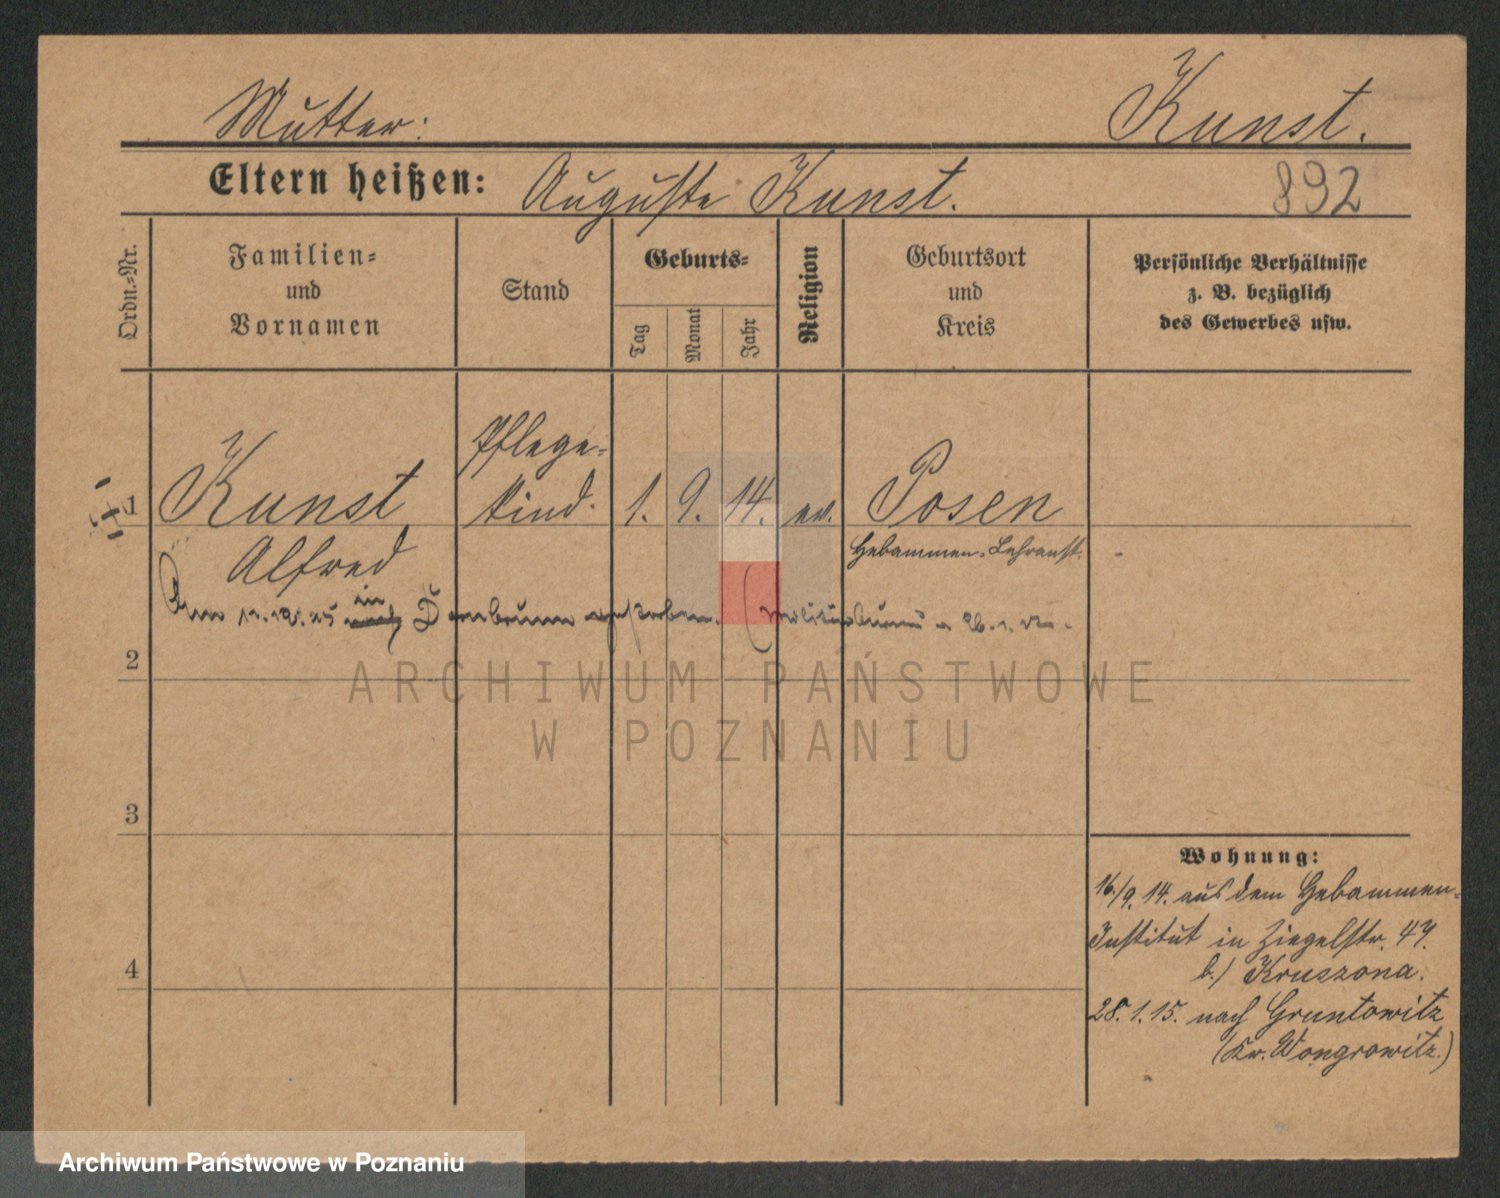 Mutter:
Kunst.
Eltern heißen: Auguste Kunst.
892
Ordn.=Nr.
Familien=
und
Vornamen
Stand
Geburts=
Tag
Monat
Jahr
Religion
Geburtsort
und
Kreis
Persönliche Verhältnisse
z. B. bezüglich
des Gewerbes usw.
Pflege=
1 Kunst kind. 1. 9. 14. ev. Posen
Alfred
Hebammen-Lehranst.
in
Am gestorben.
2
3
4
Wohnung:
16./9. 14. aus dem Hebammen-
Institut in Ziegelstr. 47.
b./ Kruszona.
28. 1. 15. nach Gruntowitz
(Kr. Wongrowitz.)
ARCHIWUM PAŃSTWOWE
W POZNANIU
Archiwum Państwowe w Poznaniu